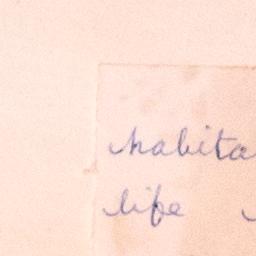 habita
life